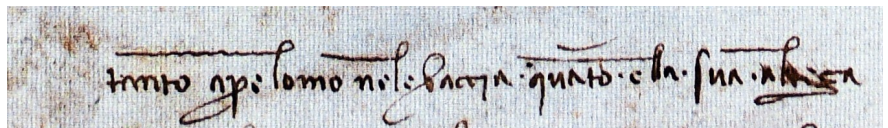 tanto apre lomo nele braccia · quato · e la · sua · alteza